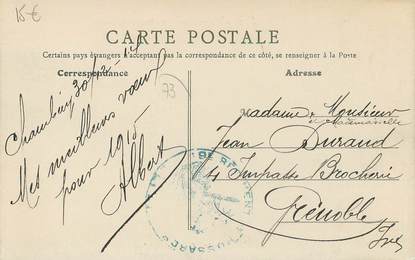 15€
CARTE POSTALE
Certains pays étrangers n'acceptant pas la correspondance de ce côté, se renseigner à la Poste
Correspondance
Adresse
73
Chambéry 30/12-14
Mes meilleurs vœux
pour 1915
Albert
Madame, Monsieur
et Mademoiselle
Jean Durand
4 Impasse Brocherie
Grenoble
Isre
HUSSARDS